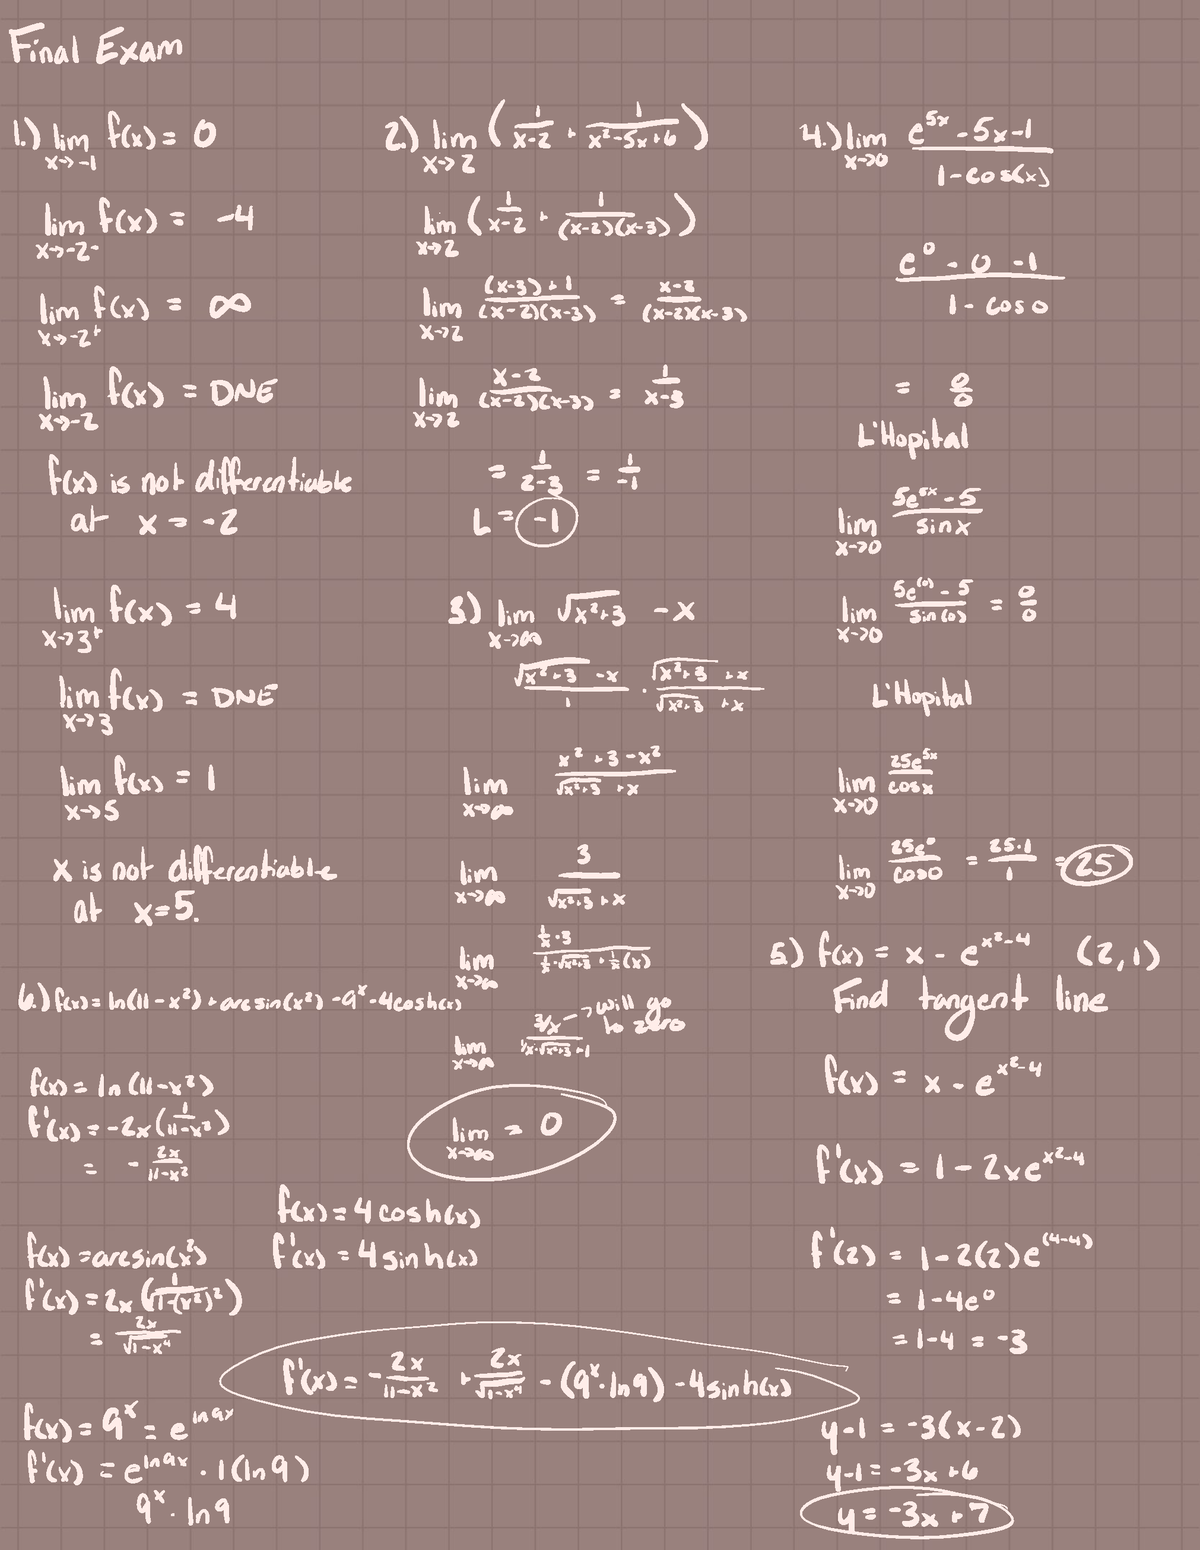 Final Exam
1.) lim x→-1 f(x) = 0
lim x→-2⁻ f(x) = -4
lim x→-2⁺ f(x) = ∞
lim x→-2 f(x) = DNE
f(x) is not differentiable
at x = -2
lim x→3⁺ f(x) = 4
lim x→3 f(x) = DNE
lim x→5 f(x) = 1
x is not differentiable
at x=5.
2.) lim x→2 (1/(x-2) + 1/(x²-5x+6))
lim x→2 (1/(x-2) + 1/((x-2)(x-3)))
lim x→2 ((x-3)+1)/((x-2)(x-3)) = (x-2)/((x-2)(x-3))
lim x→2 (x-2)/((x-2)(x-3)) = 1/(x-3)
= 1/(2-3) = 1/-1
L = -1
3) lim x→∞ √(x²+3) - x
(√(x²+3) - x)/1 · (√(x²+3) + x)/(√(x²+3) + x)
lim x→∞ (x²+3-x²)/(√(x²+3) + x)
lim x→∞ 3/(√(x²+3) + x)
lim x→∞ (1/x · 3)/(1/x · √(x²+3) + 1/x (x))
lim x→∞ (3/x)/(1/x · √(x²+3) + 1) → will go
to zero
lim x→∞ = 0
4.) lim x→0 (e^(5x) - 5x - 1)/(1 - cos(x))
(e⁰ - 0 - 1)/(1 - cos 0)
= 0/0
L'Hopital
lim x→0 (5e^(5x) - 5)/(sin x)
lim x→0 (5e^(0) - 5)/(sin(0)) = 0/0
L'Hopital
lim x→0 25e^(5x)/cosx
lim x→0 25e⁰/cos0 = 25·1/1 = 25
5.) f(x) = x - e^(x²-4) (2,1)
Find tangent line
f(x) = x - e^(x²-4)
f'(x) = 1 - 2xe^(x²-4)
f'(2) = 1 - 2(2)e^(4-4)
= 1-4e⁰
= 1-4 = -3
y-1 = -3(x-2)
y-1 = -3x+6
y = -3x+7
6.) f(x) = ln(11-x²) + arcsin(x²) - 9ˣ - 4cosh(x)
f(x) = ln(11-x²)
f'(x) = -2x(1/(11-x²))
= - 2x/(11-x²)
f(x) = arcsin(x²)
f'(x) = 2x(1/√(1-(x²)²))
= 2x/√(1-x⁴)
f(x) = 9ˣ = e^(ln9x)
f'(x) = e^(ln9x) · 1(ln9)
9ˣ · ln9
f(x) = 4cosh(x)
f'(x) = 4sinh(x)
f'(x) = - 2x/(11-x²) + 2x/√(1-x⁴) - (9ˣ·ln9) - 4sinh(x)